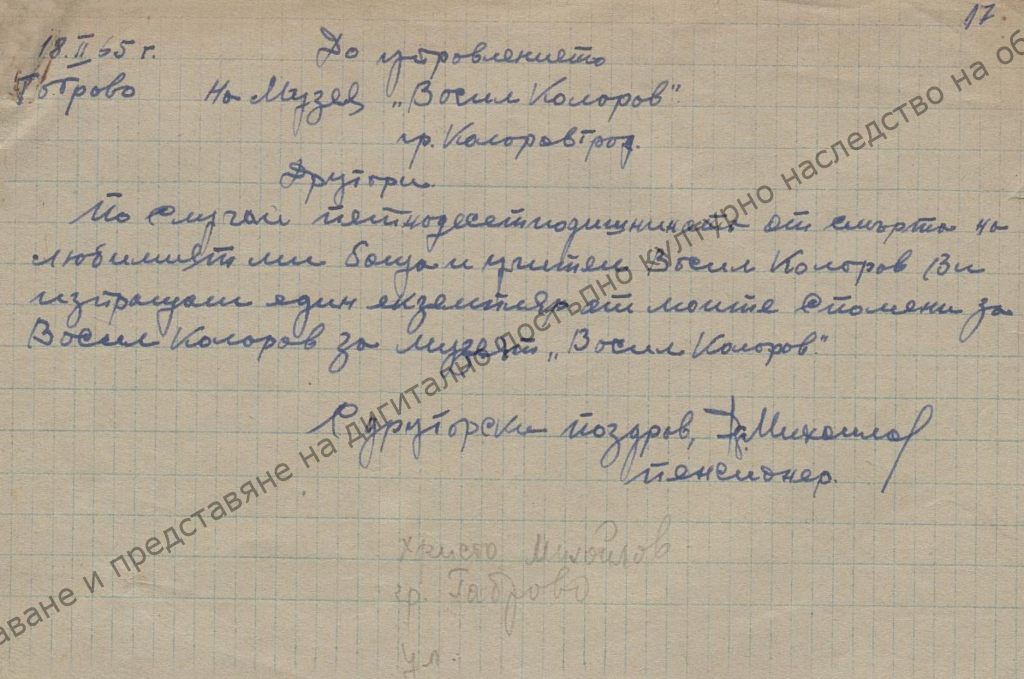 17.
18.II 65 г. До управлението
Габрово на Музея „Васил Коларов"
гр. Коларовград.
Другари.
По случай петнадесетгодишнината от смърта на
любимият ми баща и учител Васил Коларов Ви
изпращам един екземпляр от моите спомени за
Васил Коларов за музеят „Васил Коларов."
С другарски поздрав, Хр. Михайлов
пенсионер.
Христо Михайлов
гр. Габрово
ул.
аване и представяне на дигитално достъпно културно наследство на об